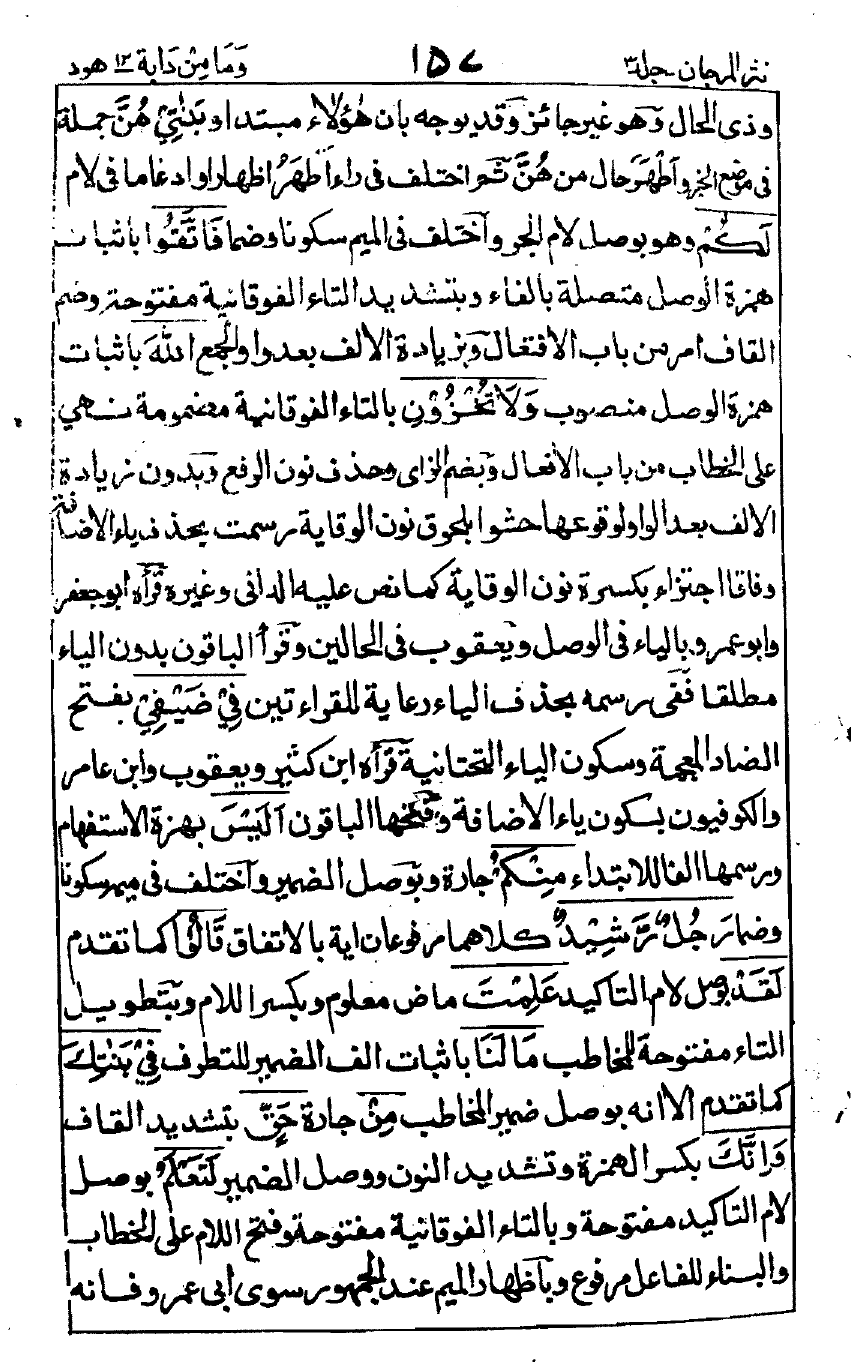 نثر المرجان جلد ۳ ۱۵۷ وَمَا مِنْ دَابة ۱۲ هود
وذى الحال وهو غير جائز وقد يوجه بان هٰؤلاء مبتدا وبَنٰتِيْ هُنَّ جملة
فى موضع الخبر وأطهرَ حال من هُنَّ ثم اختلف فى راء أَطْهَرُ اظهارا وادغاما فى لام
لَكُمْ وهو بوصل لام الجر واختلف فى الميم سكونا وضما فَاتَّقُوا باثبات
همزة الوصل متصلة بالفاء وبتشديد التاء الفوقانية مفتوحة وضم
القاف امر من باب الافتعال وبزيادة الالف بعد واو الجمع اللّٰهَ باثبات
همزة الوصل منصوب وَلَا تُخْزُوْنِ بالتاء الفوقانية مضمومة نهي
على الخطاب من باب الأفعال وبضم الزاى وحذف نون الرفع وبدون زيادة
الالف بعد الواو لوقوعها حشوا بلحوق نون الوقاية رسمت بحذف ياء الاضافة
وفاقا اجتزاء بكسرة نون الوقاية كما نص عليه الدانى وغيره قرأه ابو جعفر
وابو عمرو بالياء فى الوصل ويعقوب فى الحالين وقرأ الباقون بدون الياء
مطلقا ففى رسمه بحذف الياء رعاية للقراءتين فِيْ ضَيْفِيْ بفتح
الضاد المعجمة وسكون الياء التحتانية قرأه ابن كثير ويعقوب وابن عامر
والكوفيون بسكون ياء الاضافة وفتحها الباقون اَلَيْسَ بهمزة الاستفهام
ورسمها الفا للابتداء مِنْكُمْ جارة وبوصل الضمير واختلف فى ميمه سكونا
وضما رَجُلٌ رَّشِيْدٌ كلاهما مرفوعان اية بالاتفاق قَالُوْا كما تقدم
لَقَدْ بوصل لام التاكيد عَلِمْتَ ماض معلوم وبكسر اللام وبتطويل
التاء مفتوحة للمخاطب مَا لَنَا باثبات الف الضمير للتطرف فِيْ بَنٰتِكَ
كما تقدم الا انه بوصل ضمير المخاطب مِنْ جارة حَقٍّ بتشديد القاف
وَاِنَّكَ بكسر الهمزة وتشديد النون ووصل الضمير لَتَعْلَمُ بوصل
لام التاكيد مفتوحة وبالتاء الفوقانية مفتوحة وفتح اللام على الخطاب
والبناء للفاعل مرفوع وباظهار الميم عند الجمهور سوى ابى عمرو فانه